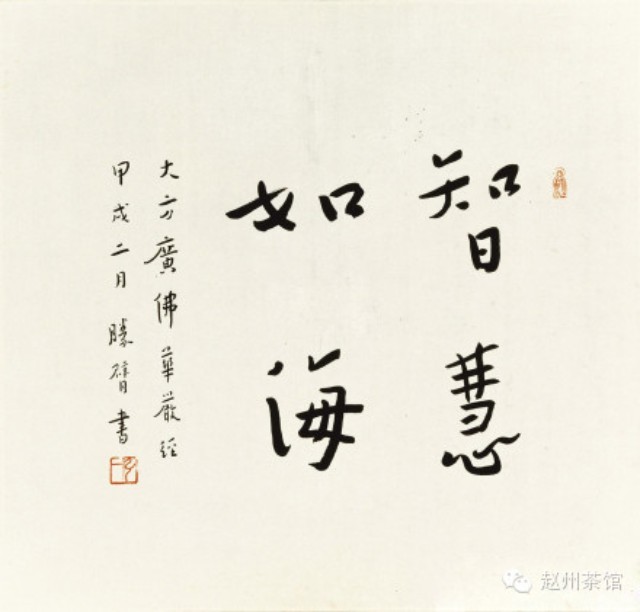 智慧
如海
大方廣佛華嚴經
甲戌二月 勝〇書
赵州茶馆